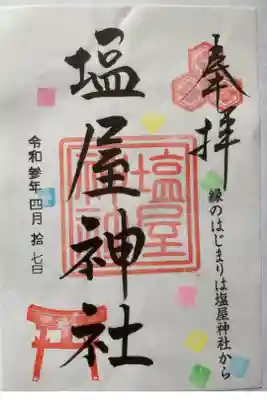 奉拝
縁のはじまりは塩屋神社から
塩屋神社
塩屋
神社
令和参年四月拾七日